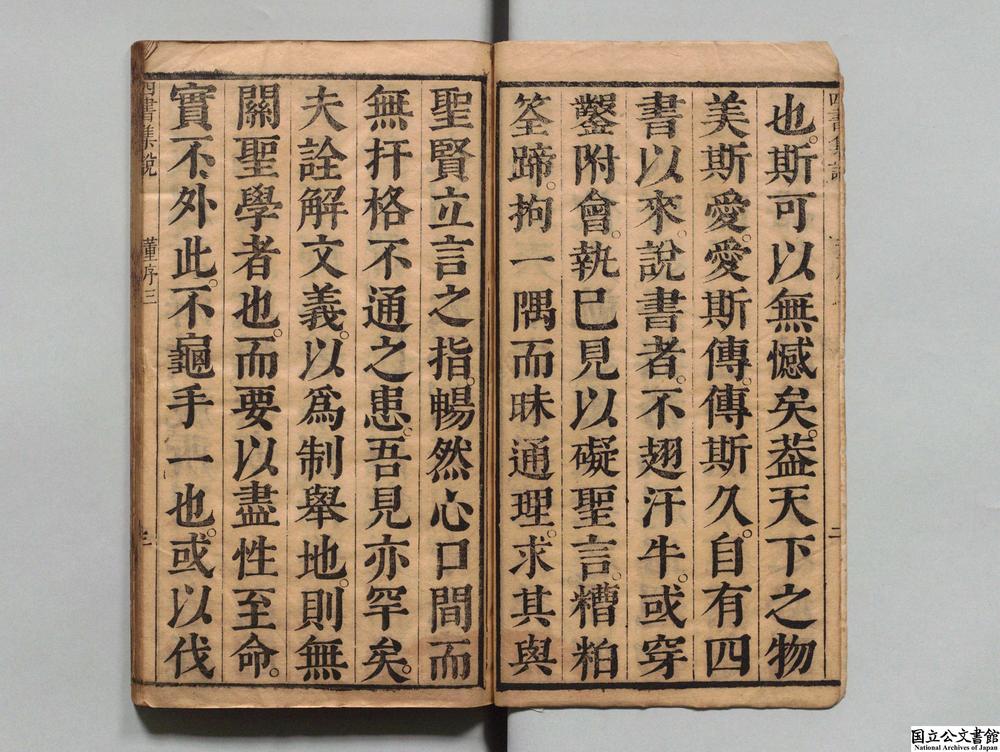 也。斯可以無憾矣。葢天下之物
美斯愛。愛斯傳。傳斯久。自有四
書以來。說書者。不翅汗牛。或穿
鑿附會。執巳見以礙聖言。糟粕
筌蹄。拘一隅而昧通理。求其與
聖賢立言之指。暢然心口間而
無扞格不通之患。吾見亦罕矣。
夫詮解文義。以爲制舉地。則無
關聖學者也。而要以盡性至命。
實不外此。不龜手一也。或以伐
四書集說 董序三 三
二
国立公文書館
National Archives of Japan